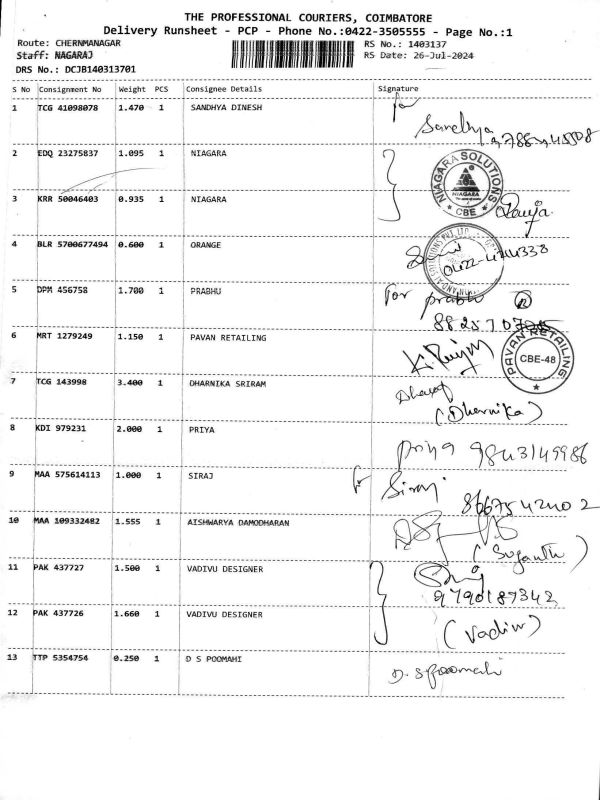 THE PROFESSIONAL COURIERS, COIMBATORE
Delivery Runsheet - PCP - Phone No.:0422-3505555 - Page No.:1
Route: CHERNMANAGAR RS No.: 1403137
Staff: NAGARAJ RS Date: 26-Jul-2024
DRS No.: DCJB140313701
S No Consignment No Weight PCS Consignee Details Signature
1 TCG 41098078 1.470 1 SANDHYA DINESH for
Sandhya
2 EDQ 23275837 1.095 1 NIAGARA
NIAGARA SOLUTIONS
NIAGARA
CBE
3 KRR 50046403 0.935 1 NIAGARA
4 BLR 5700677494 0.600 1 ORANGE
0422-4214338
5 DPM 456758 1.700 1 PRABHU For prabhu
6 MRT 1279249 1.150 1 PAVAN RETAILING
PAVAN RETAILING
CBE-48
7 TCG 143998 3.400 1 DHARNIKA SRIRAM
(Dharnika)
8 KDI 979231 2.000 1 PRIYA
Priya 9843149986
9 MAA 575614113 1.000 1 SIRAJ for Siraj
8667542402
10 MAA 109332482 1.555 1 AISHWARYA DAMODHARAN
(Suganthi)
11 PAK 437727 1.500 1 VADIVU DESIGNER
9790187342
12 PAK 437726 1.660 1 VADIVU DESIGNER (Vadivu)
13 TTP 5354754 0.250 1 D S POOMAHI D. S poomahi